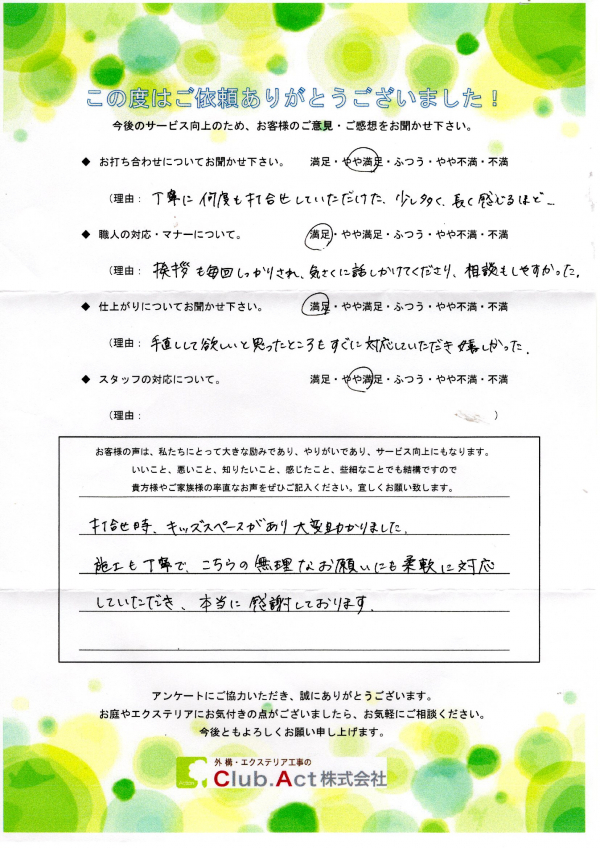 この度はご依頼ありがとうございました！
今後のサービス向上のため、お客様のご意見・ご感想をお聞かせ下さい。
◆ お打ち合わせについてお聞かせ下さい。 満足・やや満足・ふつう・やや不満・不満
（理由： 丁寧に何度も打合せしていただけた、少し多く、長く感じるほど…
◆ 職人の対応・マナーについて。 満足・やや満足・ふつう・やや不満・不満
（理由： 挨拶も毎回しっかりされ、気さくに話しかけてくださり、相談もしやすかった。
◆ 仕上がりについてお聞かせ下さい。 満足・やや満足・ふつう・やや不満・不満
（理由： 手直しして欲しいと思ったところもすぐに対応していただき嬉しかった。
◆ スタッフの対応について。 満足・やや満足・ふつう・やや不満・不満
（理由： ）
お客様の声は、私たちにとって大きな励みであり、やりがいであり、サービス向上にもなります。
いいこと、悪いこと、知りたいこと、感じたこと、些細なことでも結構ですので
貴方様やご家族様の率直なお声をぜひご記入ください。宜しくお願い致します。
打合せ時、キッズスペースがあり大変助かりました。
施工も丁寧で、こちらの無理なお願いにも柔軟に対応
していただき、本当に感謝しております。
アンケートにご協力いただき、誠にありがとうございます。
お庭やエクステリアにお気付きの点がございましたら、お気軽にご相談ください。
今後ともよろしくお願い申し上げます。
外構・エクステリア工事の
Club.Act株式会社